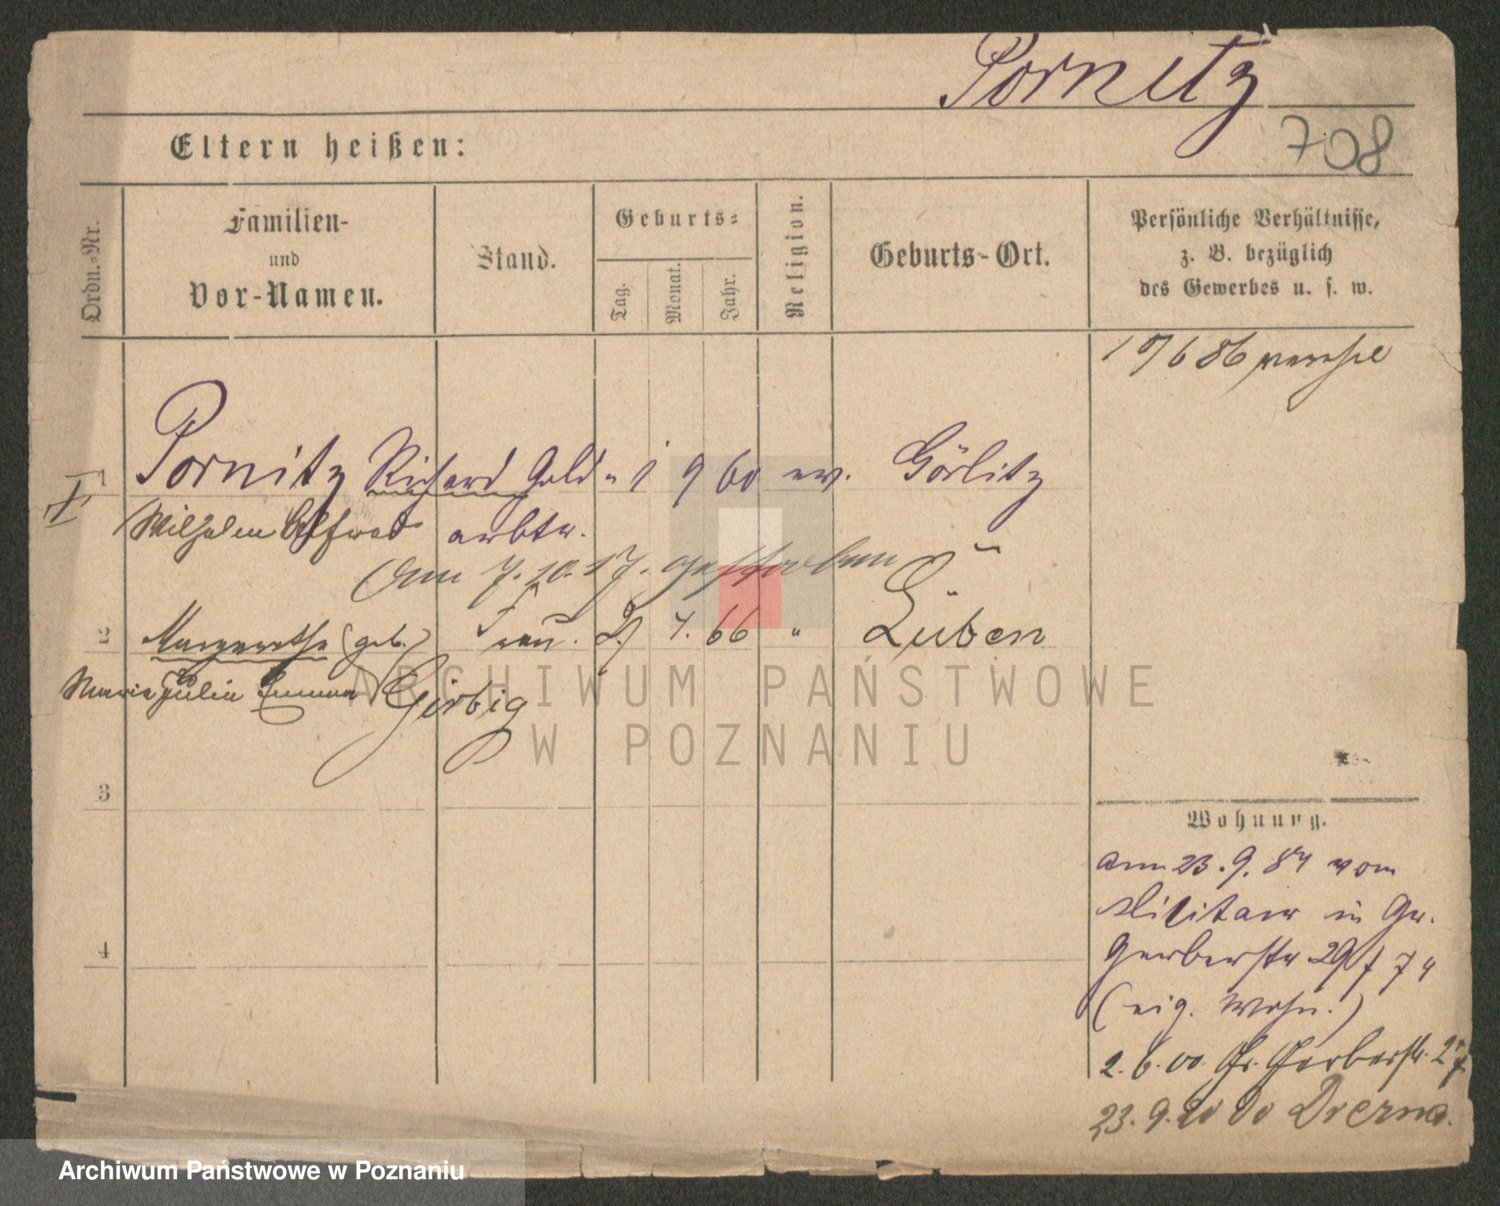 Pornitz
708
Eltern heißen:
Ordn.-Nr.
Familien-
und
Vor-Namen.
Stand.
Geburts-
Tag.
Monat.
Jahr.
Religion.
Geburts-Ort.
Persönliche Verhältnisse,
z. B. bezüglich
des Gewerbes u. s. w.
1
Pornitz Richard Gold- 1 9 60 ev. Görlitz
Wilhelm arbtr.
Am 7.10.17. gestorben
2
Margarethe (geb.) Frau. 4. 66 " Lüben
Maria Julie Emma Girbig
ARCHIWUM PAŃSTWOWE
W POZNANIU
3
Wohnung.
am 23.9.84 vom
Militair in Gr.
Gerberstr. 29
(eig. Wohn.)
4
2.6.00. Gr. Gerberstr.
23.9.
Archiwum Państwowe w Poznaniu